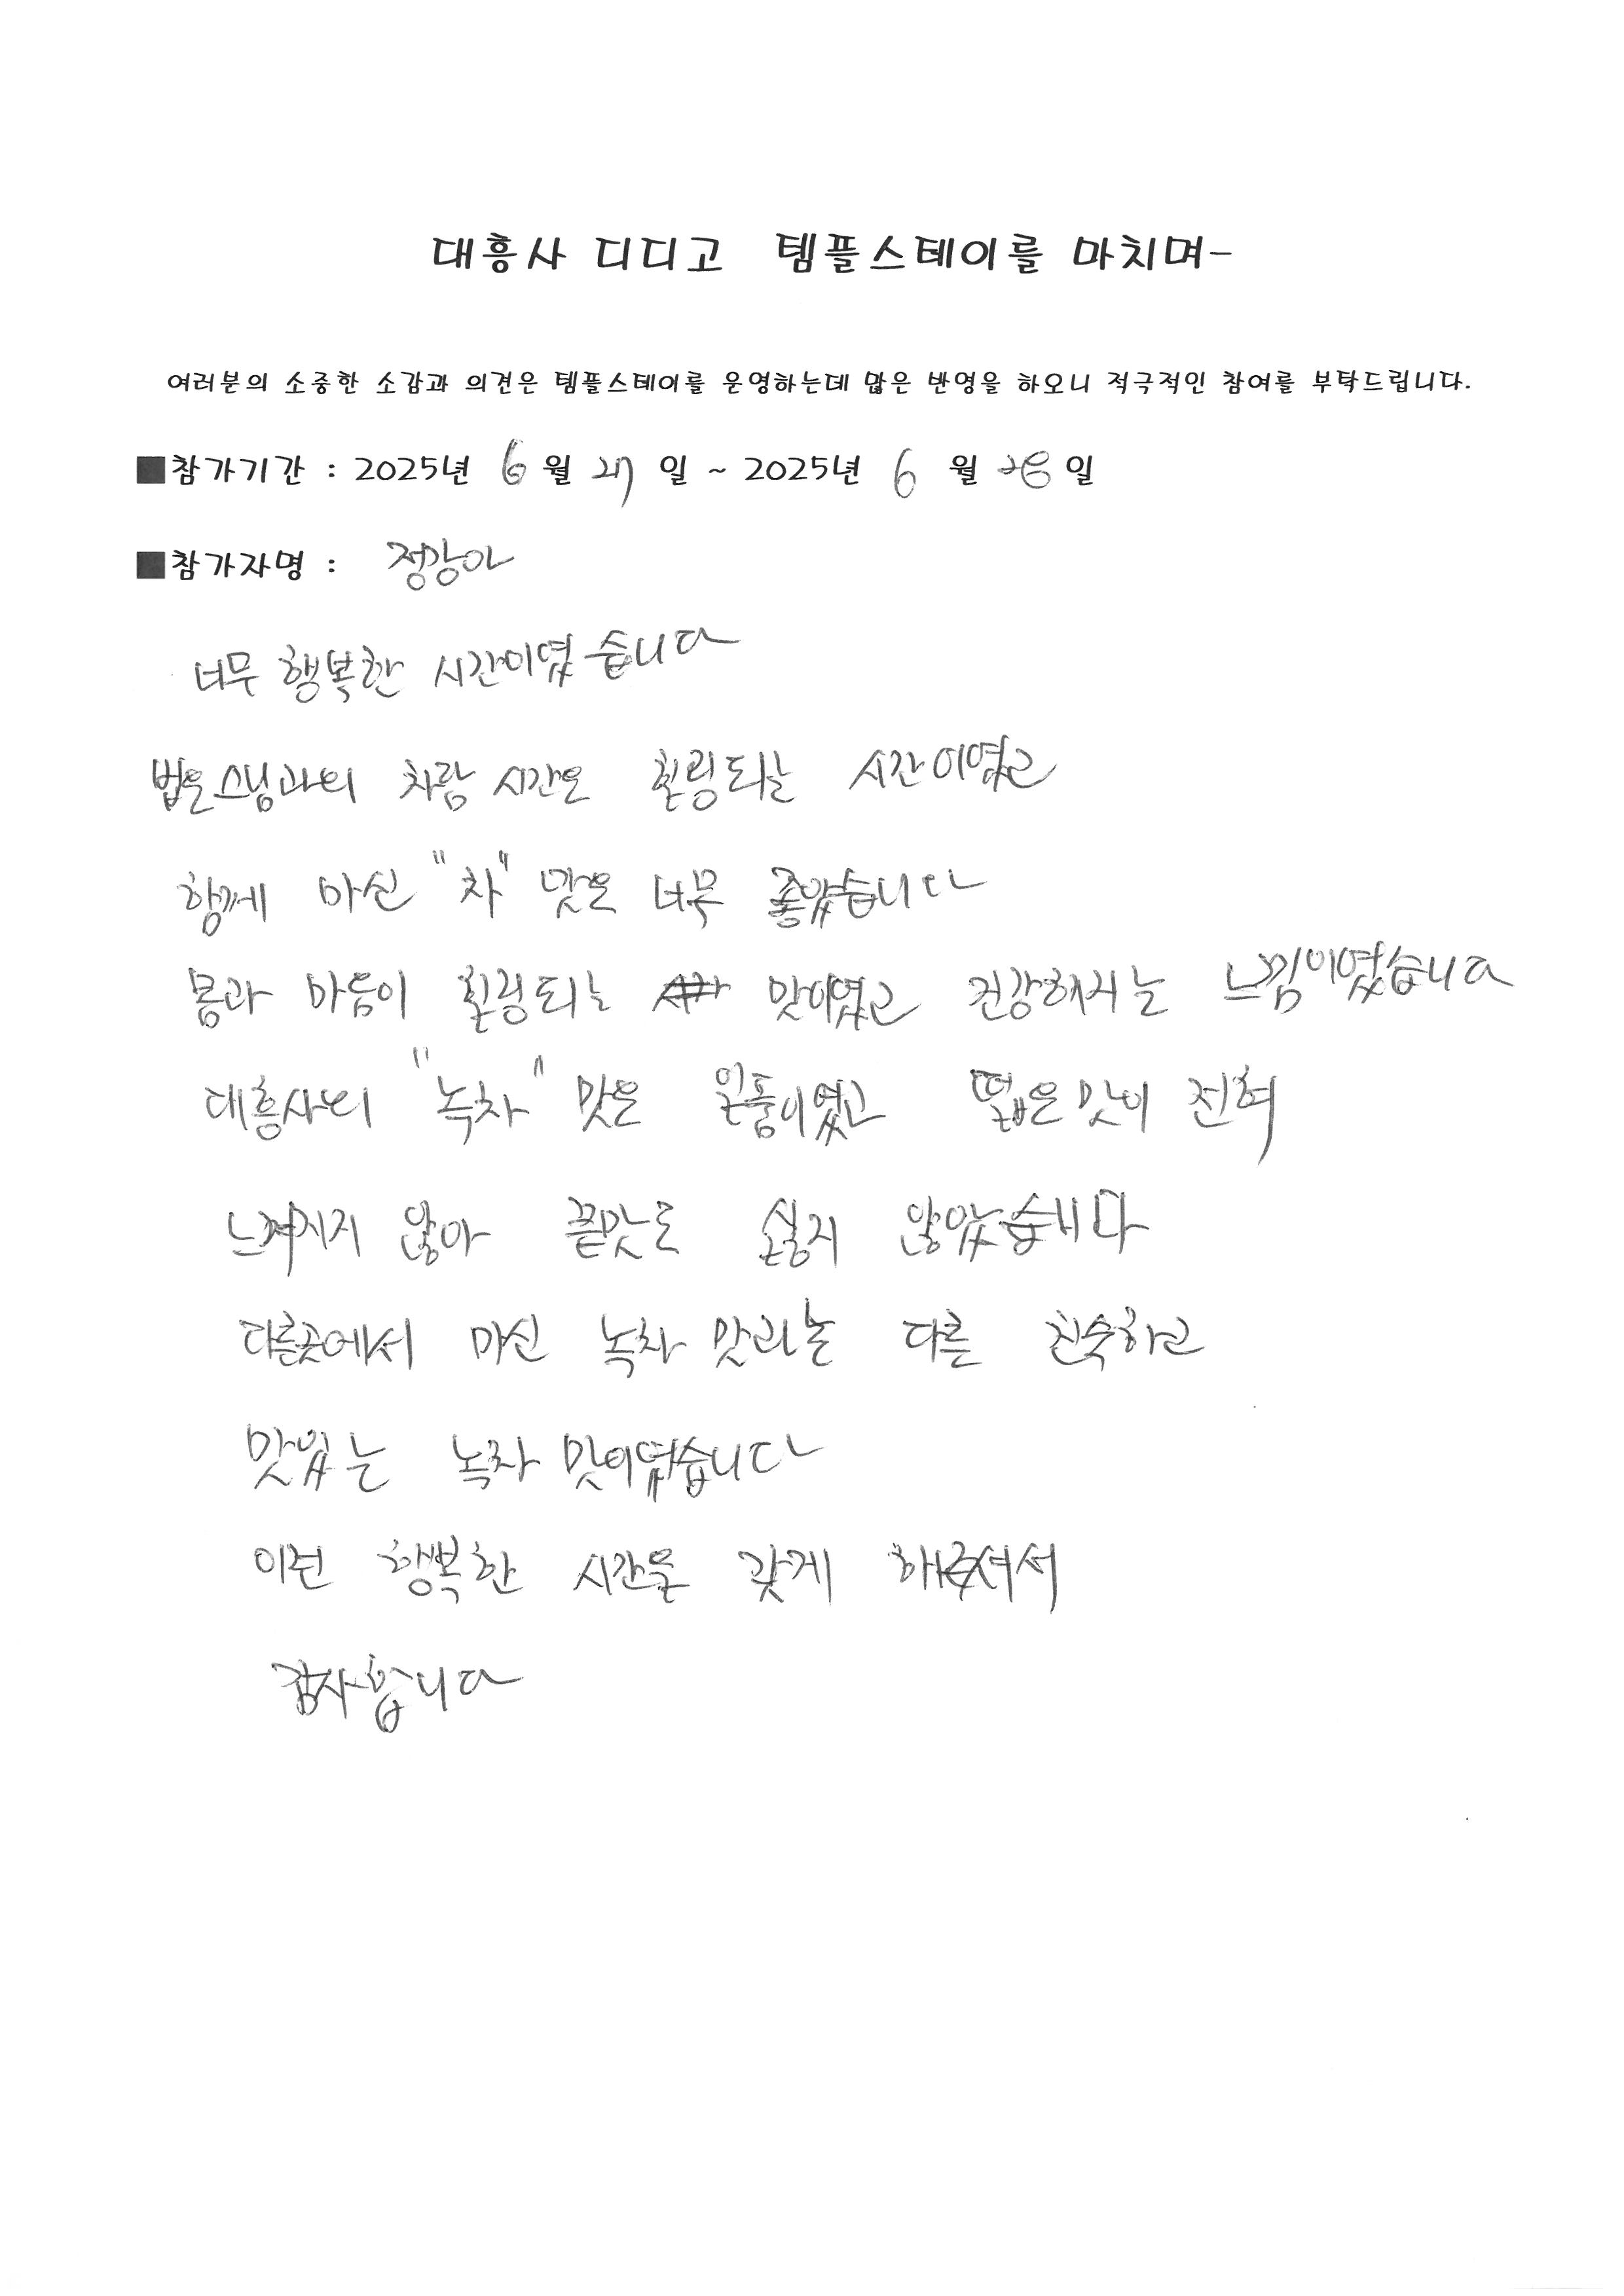 대흥사 디디고 템플스테이를 마치며-
여러분의 소중한 소감과 의견은 템플스테이를 운영하는데 많은 반영을 하오니 적극적인 참여를 부탁드립니다.
■참가기간 : 2025년 6월 27일 ~ 2025년 6월 28일
■참가자명 : 정강아
너무 행복한 시간이였습니다
법은스님과의 차담 시간은 힐링되는 시간이였고
함께 마신 "차" 맛은 너무 좋았습니다
몸과 마음이 힐링되는 맛이였고 건강해지는 느낌이였습니다
대흥사의 "녹차" 맛은 일품이였고 떫은 맛이 전혀
느껴지지 않아 끝맛도 싫지 않았습니다
다른곳에서 마신 녹차 맛과는 다른 친숙하고
맛있는 녹차 맛이였습니다
이런 행복한 시간을 갖게 해주셔서
감사합니다